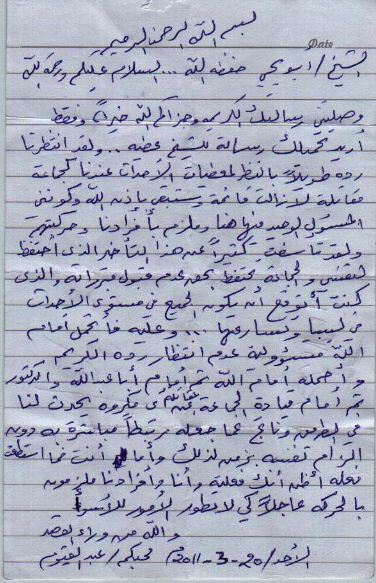 بسم الله الرحمن الرحيم
Date
الشيخ / أبو يحيى حفظه الله ... السلام عليكم ورحمة الله
وصلتني رسالتك الكريمة وجزاكم الله خيراً وفقط
أريد تحميلك رسالة للشيخ عطية .. ولقد انتظرنا
رده طويلاً بالنظر لمعطيات الأحداث عندنا كجماعة
مقاتلة لازالت قائمة وستبقى بإذن الله وكونني
المسئول الوحيد فيها هنا وملزم بأفرادنا وحركيتهم
ولقد تأسفت كثيراً عن هذا التأخير الذي أحتفظ
لنفسي والجماعة تحتفظ بحق عدم قبول مبرراته والذي
كنت أتوقع أن يكون الجميع في مستوى الأحداث
في ليبيا وتسارعها ... وعليه فأتحمل أمام
الله مسؤولية عدم انتظار رده الكريم
وأحمله أمام الله ثم أمام أبا عبد الله والدكتور
ثم أمام قيادة الجماعة عن أي مكروه يحدث لنا
في الطريق وناتج عما جعله مرتبطاً مباشرة به دون
إلزام نفسه بزمن لذلك وأما أنت فما استطعت
فعله أظن أنك فعلته وأنا وأفرادنا ملزمون
بالحركة عاجلاً كي لا تطور الأمور للأسوأ
والله من وراء القصد
الأحد / 20-3-2011 محبكم / عبد القيوم